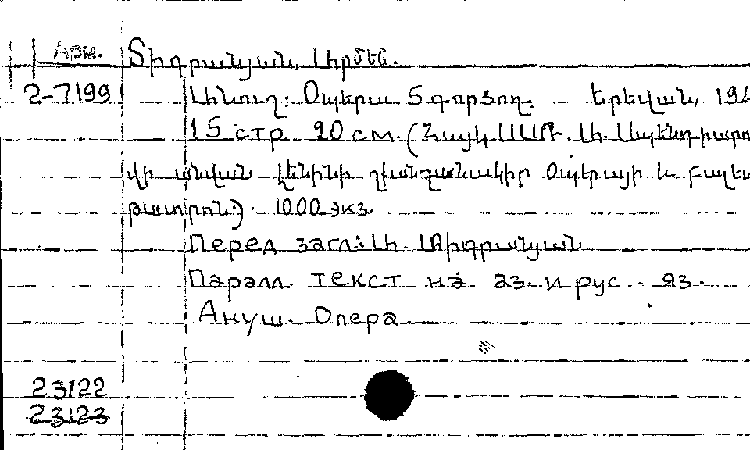 Арм. Տիգրանյան, Արմեն.
2-7199 Անուշ. Օպերա 5 գործող. – Երևան, 19
15 стр. 20 см. (Հայկ. ՍՍՌ. Ա. Սպենդիարո
վի անվան Լենինի շքանշանակիր Օպերայի և բալետ
թատրոն). 1000 экз.
Перед загл.: Ա. Տիգրանյան
Паралл. текст на аз. и рус. яз.
Ануш. Опера
23122
23123